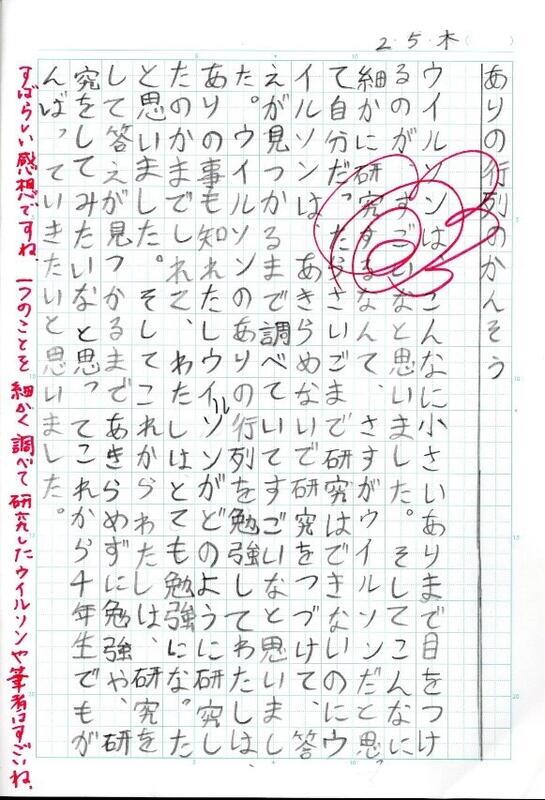 2・5・木（　）
ありの行列のかんそう
ウイルソンは、こんなに小さいありまで目をつけ
るのがすごいなと思いました。そしてこんなに
細かに研究するなんて、さすがウイルソンだと思っ
て自分だったらさいごまで研究はできないのにウ
イルソンは、あきらめないで研究をつづけて、答
えが見つかるまで調べていてすごいなと思いまし
た。ウイルソンのありの行列を勉強してわたしは、
ありの事も知れたしウイルソンがどのように研究し
たのかまでしれて、わたしはとても勉強になった
と思いました。そしてこれからわたしは、研究を
して答えが見つかるまであきらめずに勉強や、研
究をしてみたいなと思ってこれから4年生でもが
んばっていきたいと思いました。
すばらしい感想ですね。一つのことを細かく調べて研究したウイルソンや筆者はすごいね。